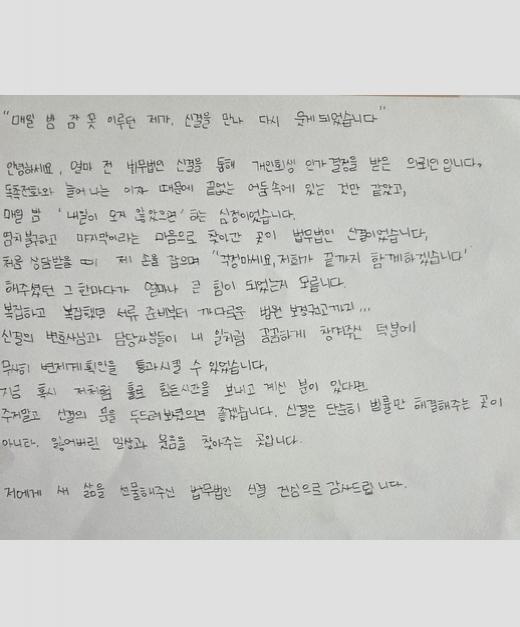 "매일 밤 잠 못 이루던 제가, 신결을 만나 다시 웃게 되었습니다"
안녕하세요, 얼마 전 법무법인 신결을 통해 개인회생 인가 결정을 받은 의뢰인입니다.
독촉전화와 늘어나는 이자 때문에 끝없는 어둠속에 있는 것만 같았고,
매일 밤 '내일이 오지 않았으면' 하는 심정이었습니다.
염치불구하고 마지막이라는 마음으로 찾아간 곳이 법무법인 신결이었습니다,
처음 상담받을 때 제 손을 잡으며 "걱정마세요, 저희가 끝까지 함께하겠습니다"
해주셨던 그 한마디가 얼마나 큰 힘이 되었는지 모릅니다.
복잡하고 복잡했던 서류 준비부터 까다로운 법원 보정권고까지...
신결의 변호사님과 담당자분들이 내 일처럼 꼼꼼하게 챙겨주신 덕분에
무사히 변제계획안을 통과시킬 수 있었습니다.
지금 혹시 저처럼 홀로 힘든시간을 보내고 계신 분이 있다면
주저말고 신결의 문을 두드려보셨으면 좋겠습니다. 신결은 단순히 법률만 해결해주는 곳이
아니라. 잃어버린 일상과 웃음을 찾아주는 곳입니다.
저에게 새 삶을 선물해주신 법무법인 신결 진심으로 감사드립니다.